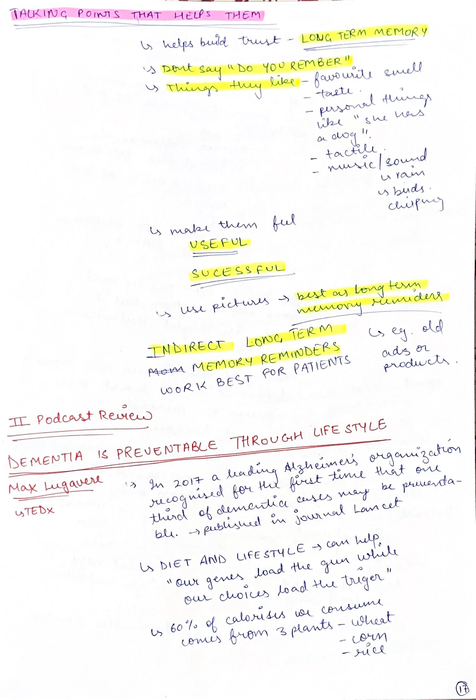 TALKING POINTS THAT HELPS THEM
↳ helps build trust - LONG TERM MEMORY
↳ Dont say "DO YOU REMBER"
↳ Things they like - favourite smell
- taste.
- personal things
like "she has
a dog".
- tactile
- music/sound
↳ rain
↳ buds.
chirping
↳ make them feel
USEFUL
SUCESSFUL
↳ use pictures → best as long term
memory reminders
INDIRECT LONG TERM
MEMORY REMINDERS
WORK BEST FOR PATIENTS
↳ eg. old
ads or
products.
II Podcast Review
DEMENTIA IS PREVENTABLE THROUGH LIFESTYLE
Max Lugavere
↳ TEDx
↳ In 2017 a leading Alzheimer's organization
recognised for the first time that one
third of dementia cases may be preventa-
ble. → published in journal Lancet
↳ DIET AND LIFESTYLE → can help
"Our genes load the gun while
our choices load the triger"
↳ 60% of calorises we consume
comes from 3 plants - wheat
- corn
- rice
17